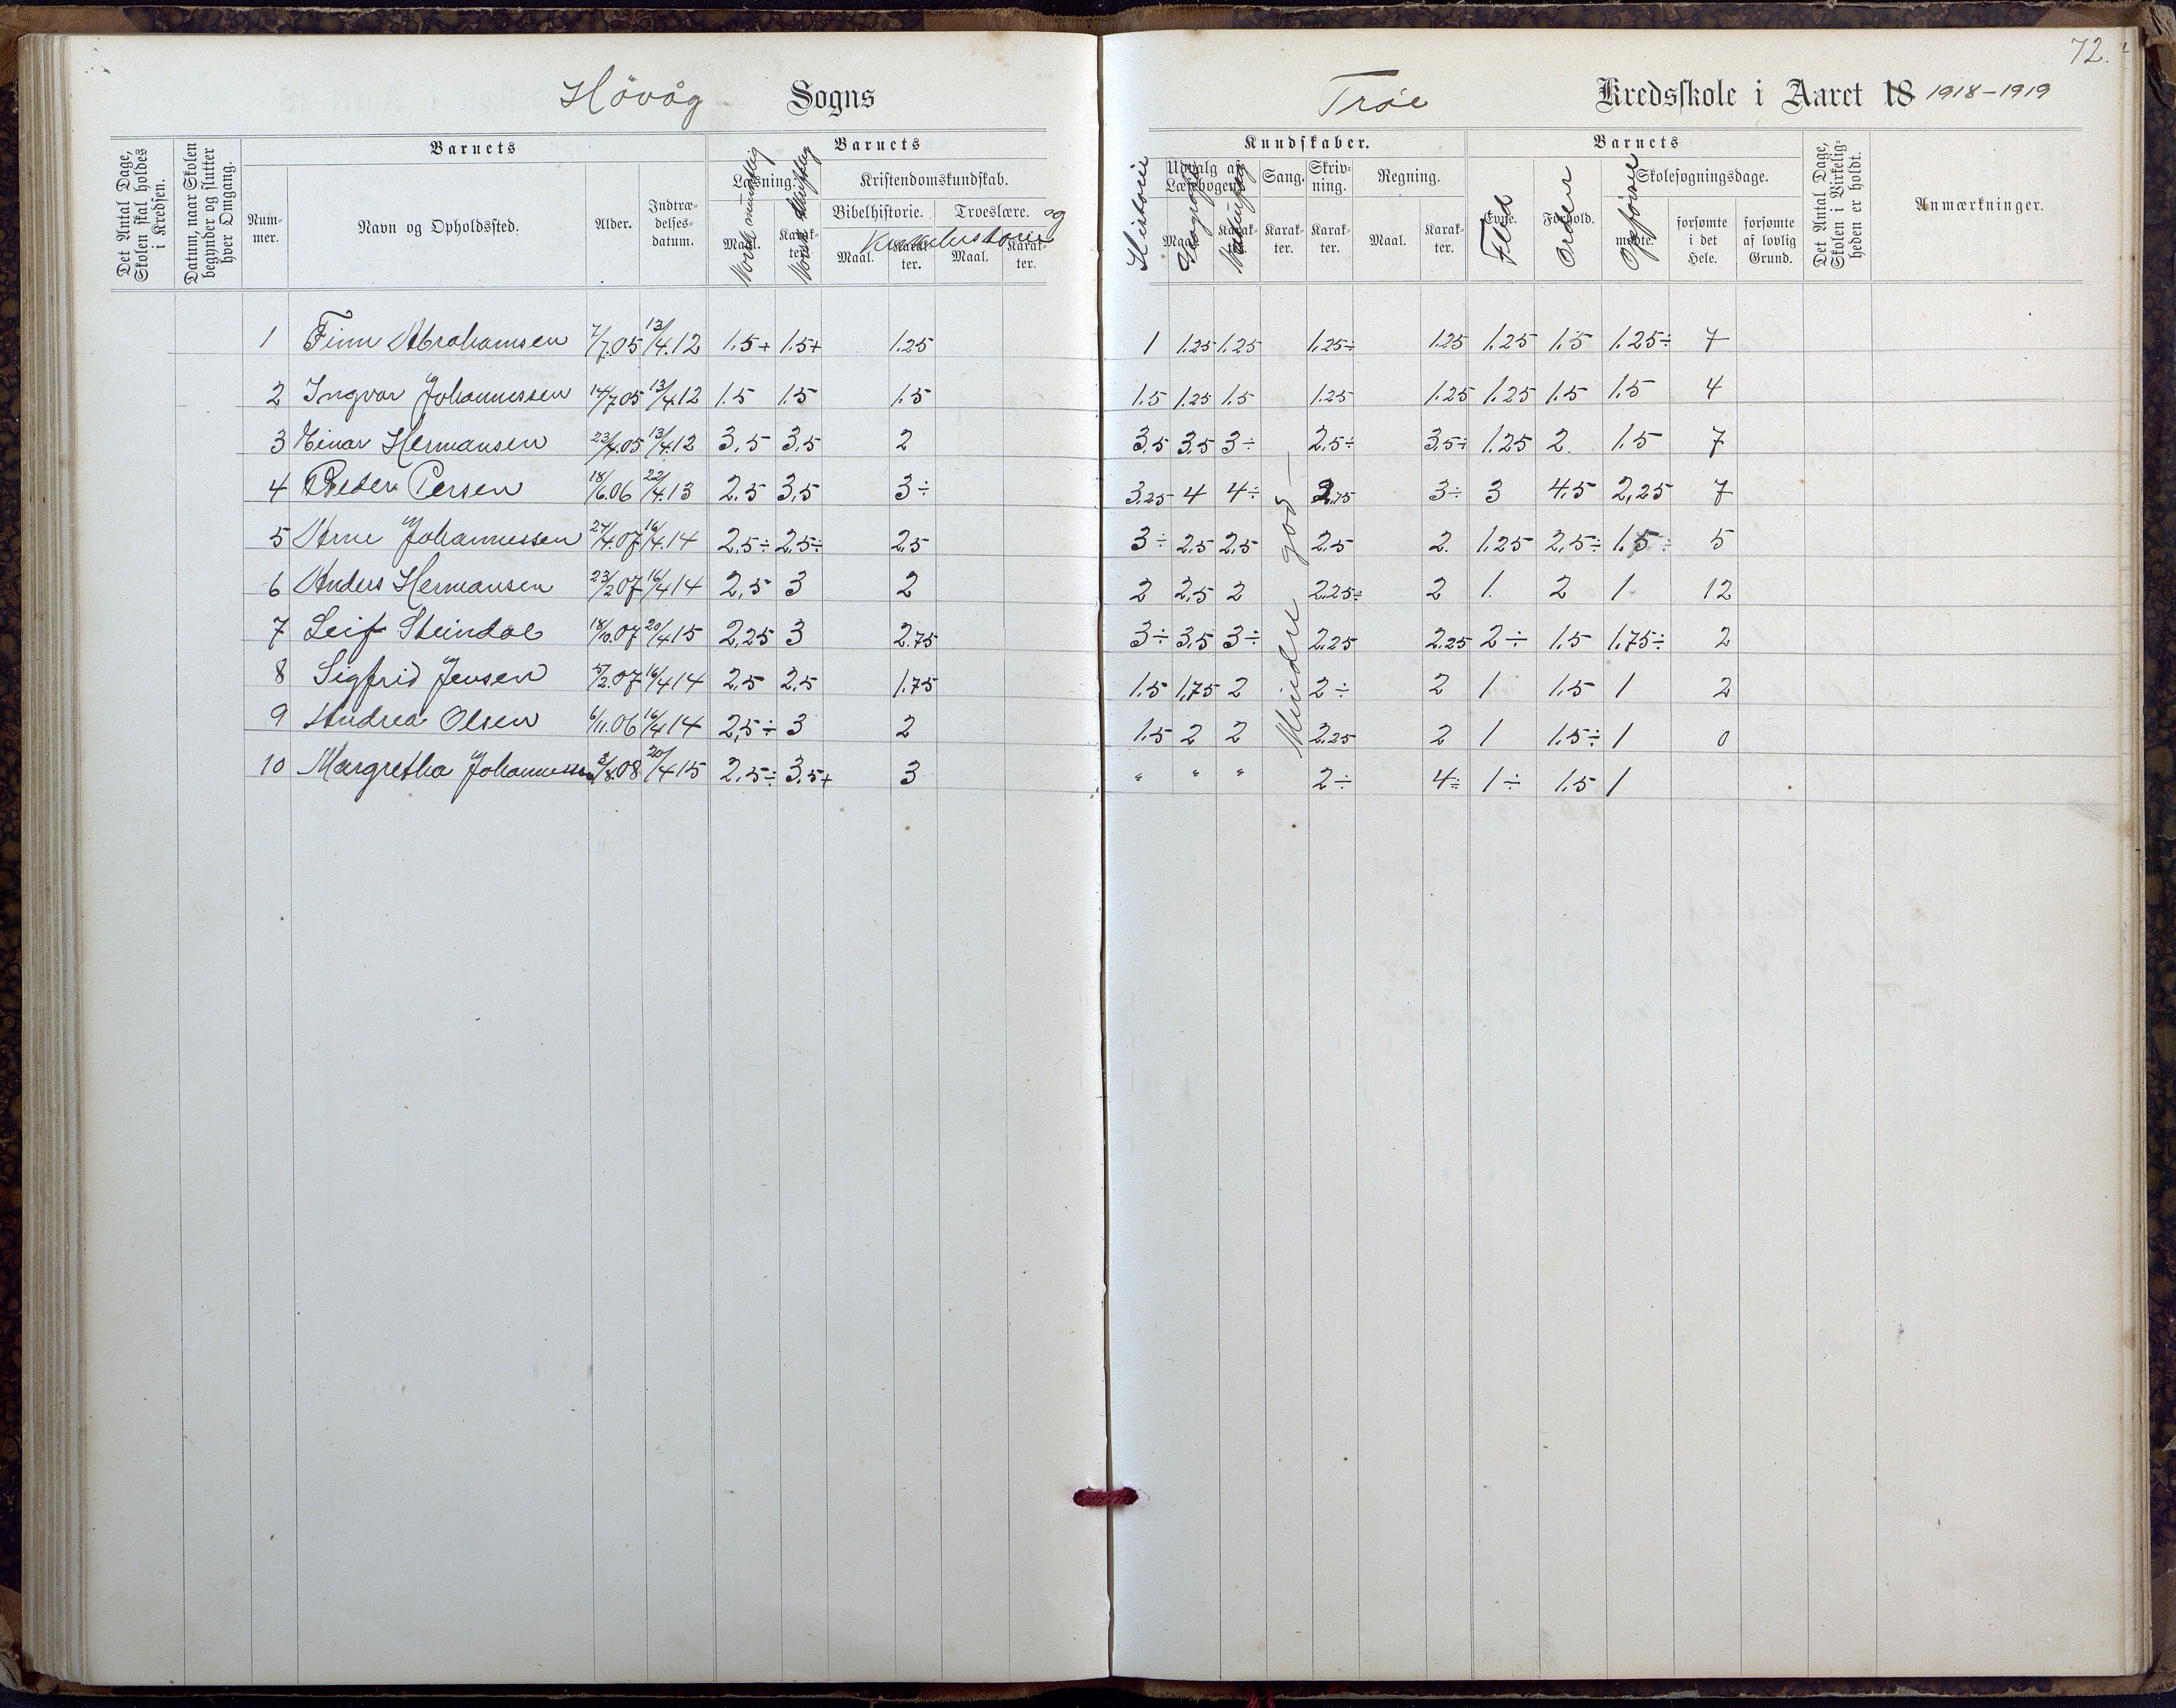 72.
Hövåg Sogns
Trøe Kredsskole i Aaret 18 1918-1919
Det Antal Dage, Skolen skal holdes i Kredsen.
Datum, naar Skolen begynder og slutter hver Omgang.
Barnets
Num-mer.
Navn og Opholdssted.
Alder.
Indtræ-delses-datum.
Barnets
Læsning.
Maal.
Karak-ter.
Norsk mundtlig
Norsk skriftlig
Kristendomskundskab.
Bibelhistorie. Troeslære.
Maal. Karak-ter. Maal. Karak-ter.
og
Historie
Kundskaber.
Udvalg af Læsebogen.
Maal. Karak-ter.
Geografi
Sang. Karak-ter.
Skriv-ning. Karak-ter.
Regning. Maal. Karak-ter.
Barnets
Evne. Forhold.
Flid Orden Opførsel
Skolesøgningsdage.
mødte. forsømte i det Hele. forsømte af lovlig Grund.
Det Antal Dage, Skolen i Virkelig-heden er holdt.
Anmærkninger.
1 Finn Abrahamsen 7/7.05 13/4.12 1.5+ 1.5+ 1.25 1 1.25 1.25 1.25÷ 1.25 1.25 1.5 1.25÷ 7
2 Ingvar Johannessen 14/7.05 13/4.12 1.5 1.5 1.5 1.5 1.25 1.5 1.25 1.25 1.25 1.5 1.5 4
3 Einar Hermansen 23/4.05 13/4.12 3.5 3.5 2 3.5 3.5 3÷ 2.5÷ 3.5÷ 1.25 2. 1.5 7
4 Peder Persen 18/6.06 22/4.13 2.5 3.5 3÷ 3.25 4 4÷ 2.75 3÷ 3 4.5 2,25 7
5 Arne Johannessen 24/4.07 16/4.14 2.5÷ 2.5÷ 2.5 3÷ 2.5 2.5 2.5 2. 1.25 2.5÷ 1.5÷ 5
6 Anders Hermansen 23/2.07 16/4.14 2,5 3 2 2 2.5 2 2.25÷ 2 1. 2 1 12
7 Leif Steindal 18/10.07 20/4.15 2,25 3 2.75 3÷ 3.5 3÷ 2.25 2.25 2÷ 1.5 1.75÷ 2
8 Sigfrid Jensen 5/2.07 16/4.14 2.5 2.5 1.75 1.5 1.75 2 2÷ 2 1 1.5 1 2
9 Andrea Olsen 6/11.06 16/4.14 2,5÷ 3 2 1.5 2 2 2.25 2 1 1.5÷ 1 0
10 Margretha Johannessen 3/8.08 20/4.15 2.5÷ 3.5+ 3 " " " 2÷ 4÷ 1÷ 1.5 1
Mindre god —